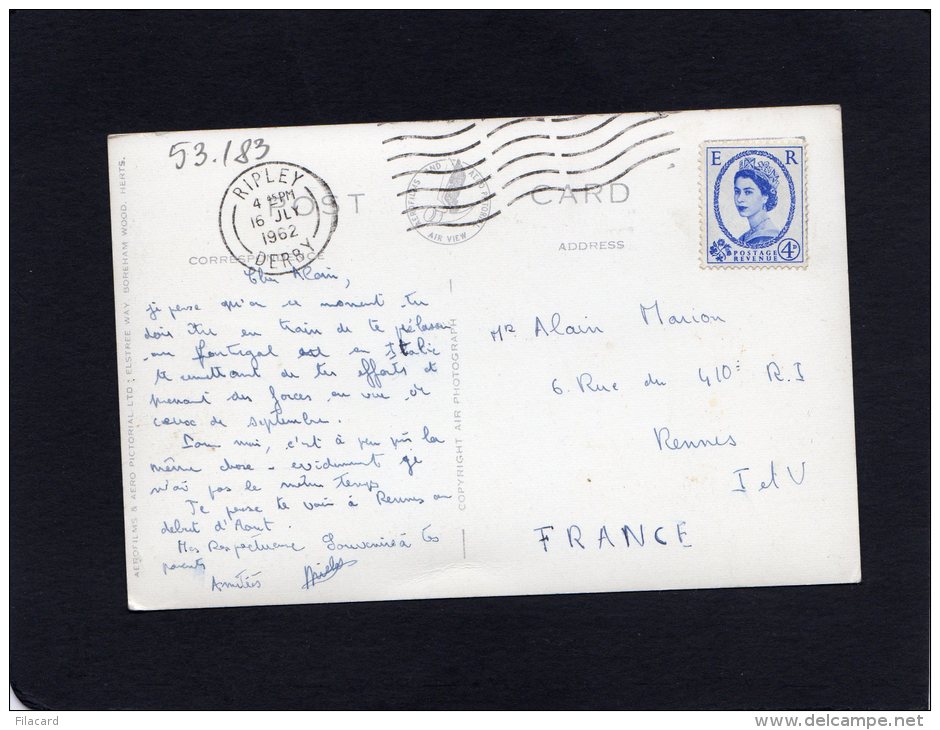 53.183
RIPLEY
4 45 PM
16 JLY
1962
DERBY
POST CARD
AEROFILMS AND AERO PICTORIAL
AIR VIEW
CORRESPONDENCE
ADDRESS
E R
POSTAGE
REVENUE
4D
Cher Alain,
je pense qu'en ce moment tu
dois être en train de te prélasser
au Portugal en Italie
te remettant de tes efforts et
prenant des forces en vue de
ceux de septembre.
Pour moi, c'est à peu près la
même chose - evidemment je
n'ai pas le même temps
Je pense te voir à Rennes au
debut d'Aout.
Mes Respectueux Souvenirs à tes
parents
Amitiés
AEROFILMS & AERO PICTORIAL LTD; ELSTREE WAY, BOREHAM WOOD, HERTS.
COPYRIGHT AIR PHOTOGRAPH
Mr Alain Marion
6. Rue du 410e R.I
Rennes
I et V
FRANCE
Filacard
www.delcampe.net